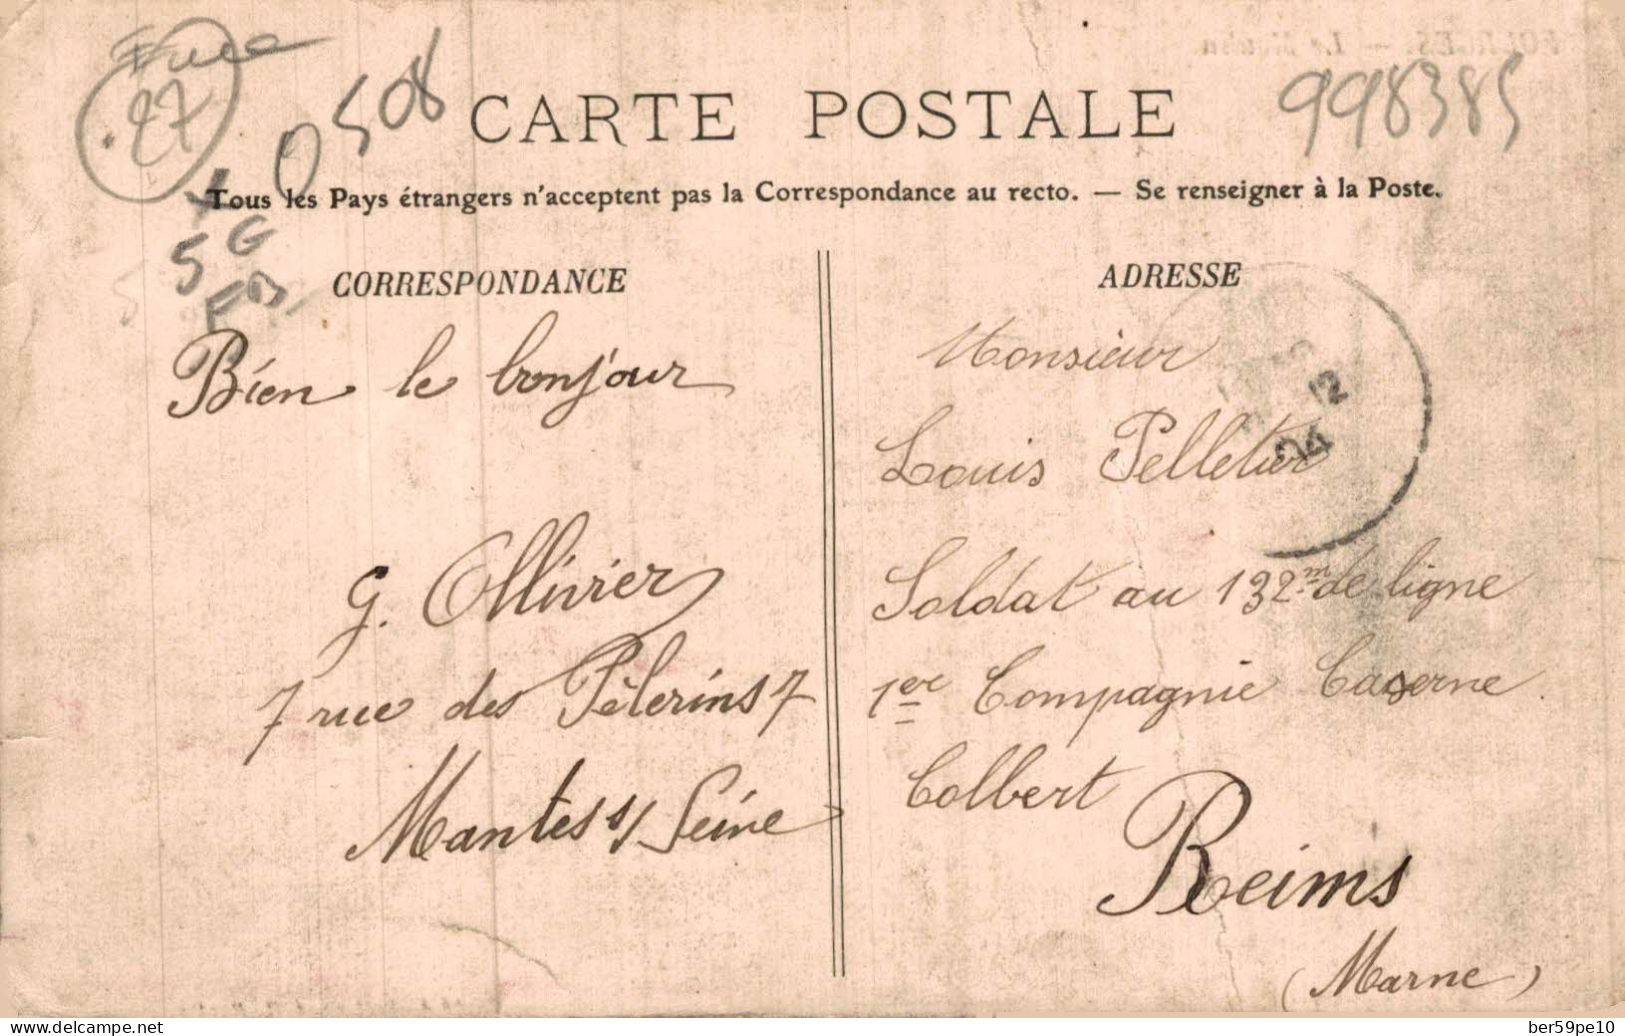 Eure
27
0508
998385
CARTE POSTALE
Tous les Pays étrangers n'acceptent pas la Correspondance au recto. — Se renseigner à la Poste.
5G
CORRESPONDANCE
Bien le bonjour
G. Ollivier
7 rue des Pèlerins 7
Mantes s/ Seine
ADRESSE
24 12
Monsieur
Louis Pelletier
Soldat au 132m de ligne
1er Compagnie Caserne
Colbert
Reims
(Marne)
delcampe.net
ber59pe10